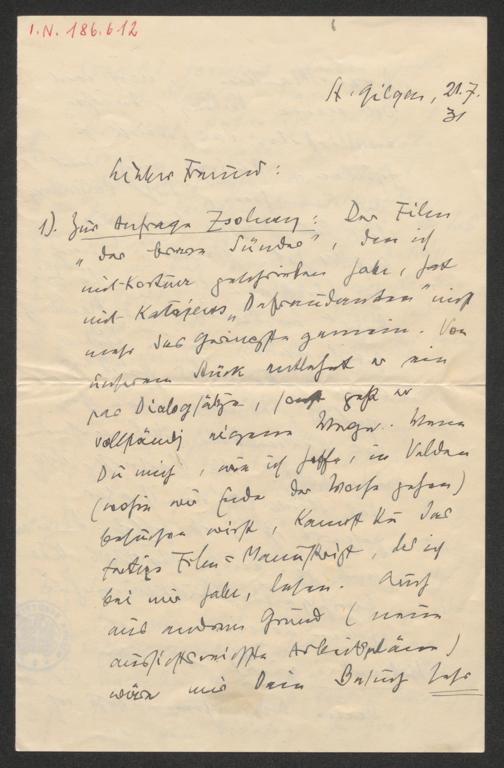 I.N. 186.612
St. Gilgen, 21.7.
31
Lieber Freund:
1). Zur Anfrage Zsolnay: Der Film
„der brave Sünder", den ich
mit Kortner geschrieben habe, hat
mit Katajews „Defraudanten" nicht
mehr das Geringste gemein. Von
unserem Stück entlehnt er ein
paar Dialogsätze, sonst geht er
vollständig eigene Wege. Wenn
Du mich, wie ich hoffe, in Velden
(wohin wir Ende der Woche gehen)
besuchen wirst, kannst Du das
fertige Film-Manuskript, das ich
bei mir habe, lesen. Auch
aus anderem Grund (neue
aussichtsreichste Arbeitspläne)
wäre mir Dein Besuch sehr